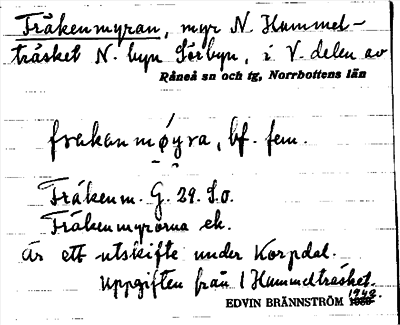 Fräkenmyran, myr N. Hummel-
träsket N. byn Sörbyn, i V. delen av
Råneå sn och tg, Norrbottens län
frakanmøyra, bf. fem.
Fräkenm. G. 29. S.o.
Fräkenmyrorna ek.
är ett utskifte under Korpdal.
Uppgiften från 1 Hummelträsket.
EDVIN BRÄNNSTRÖM 1942.